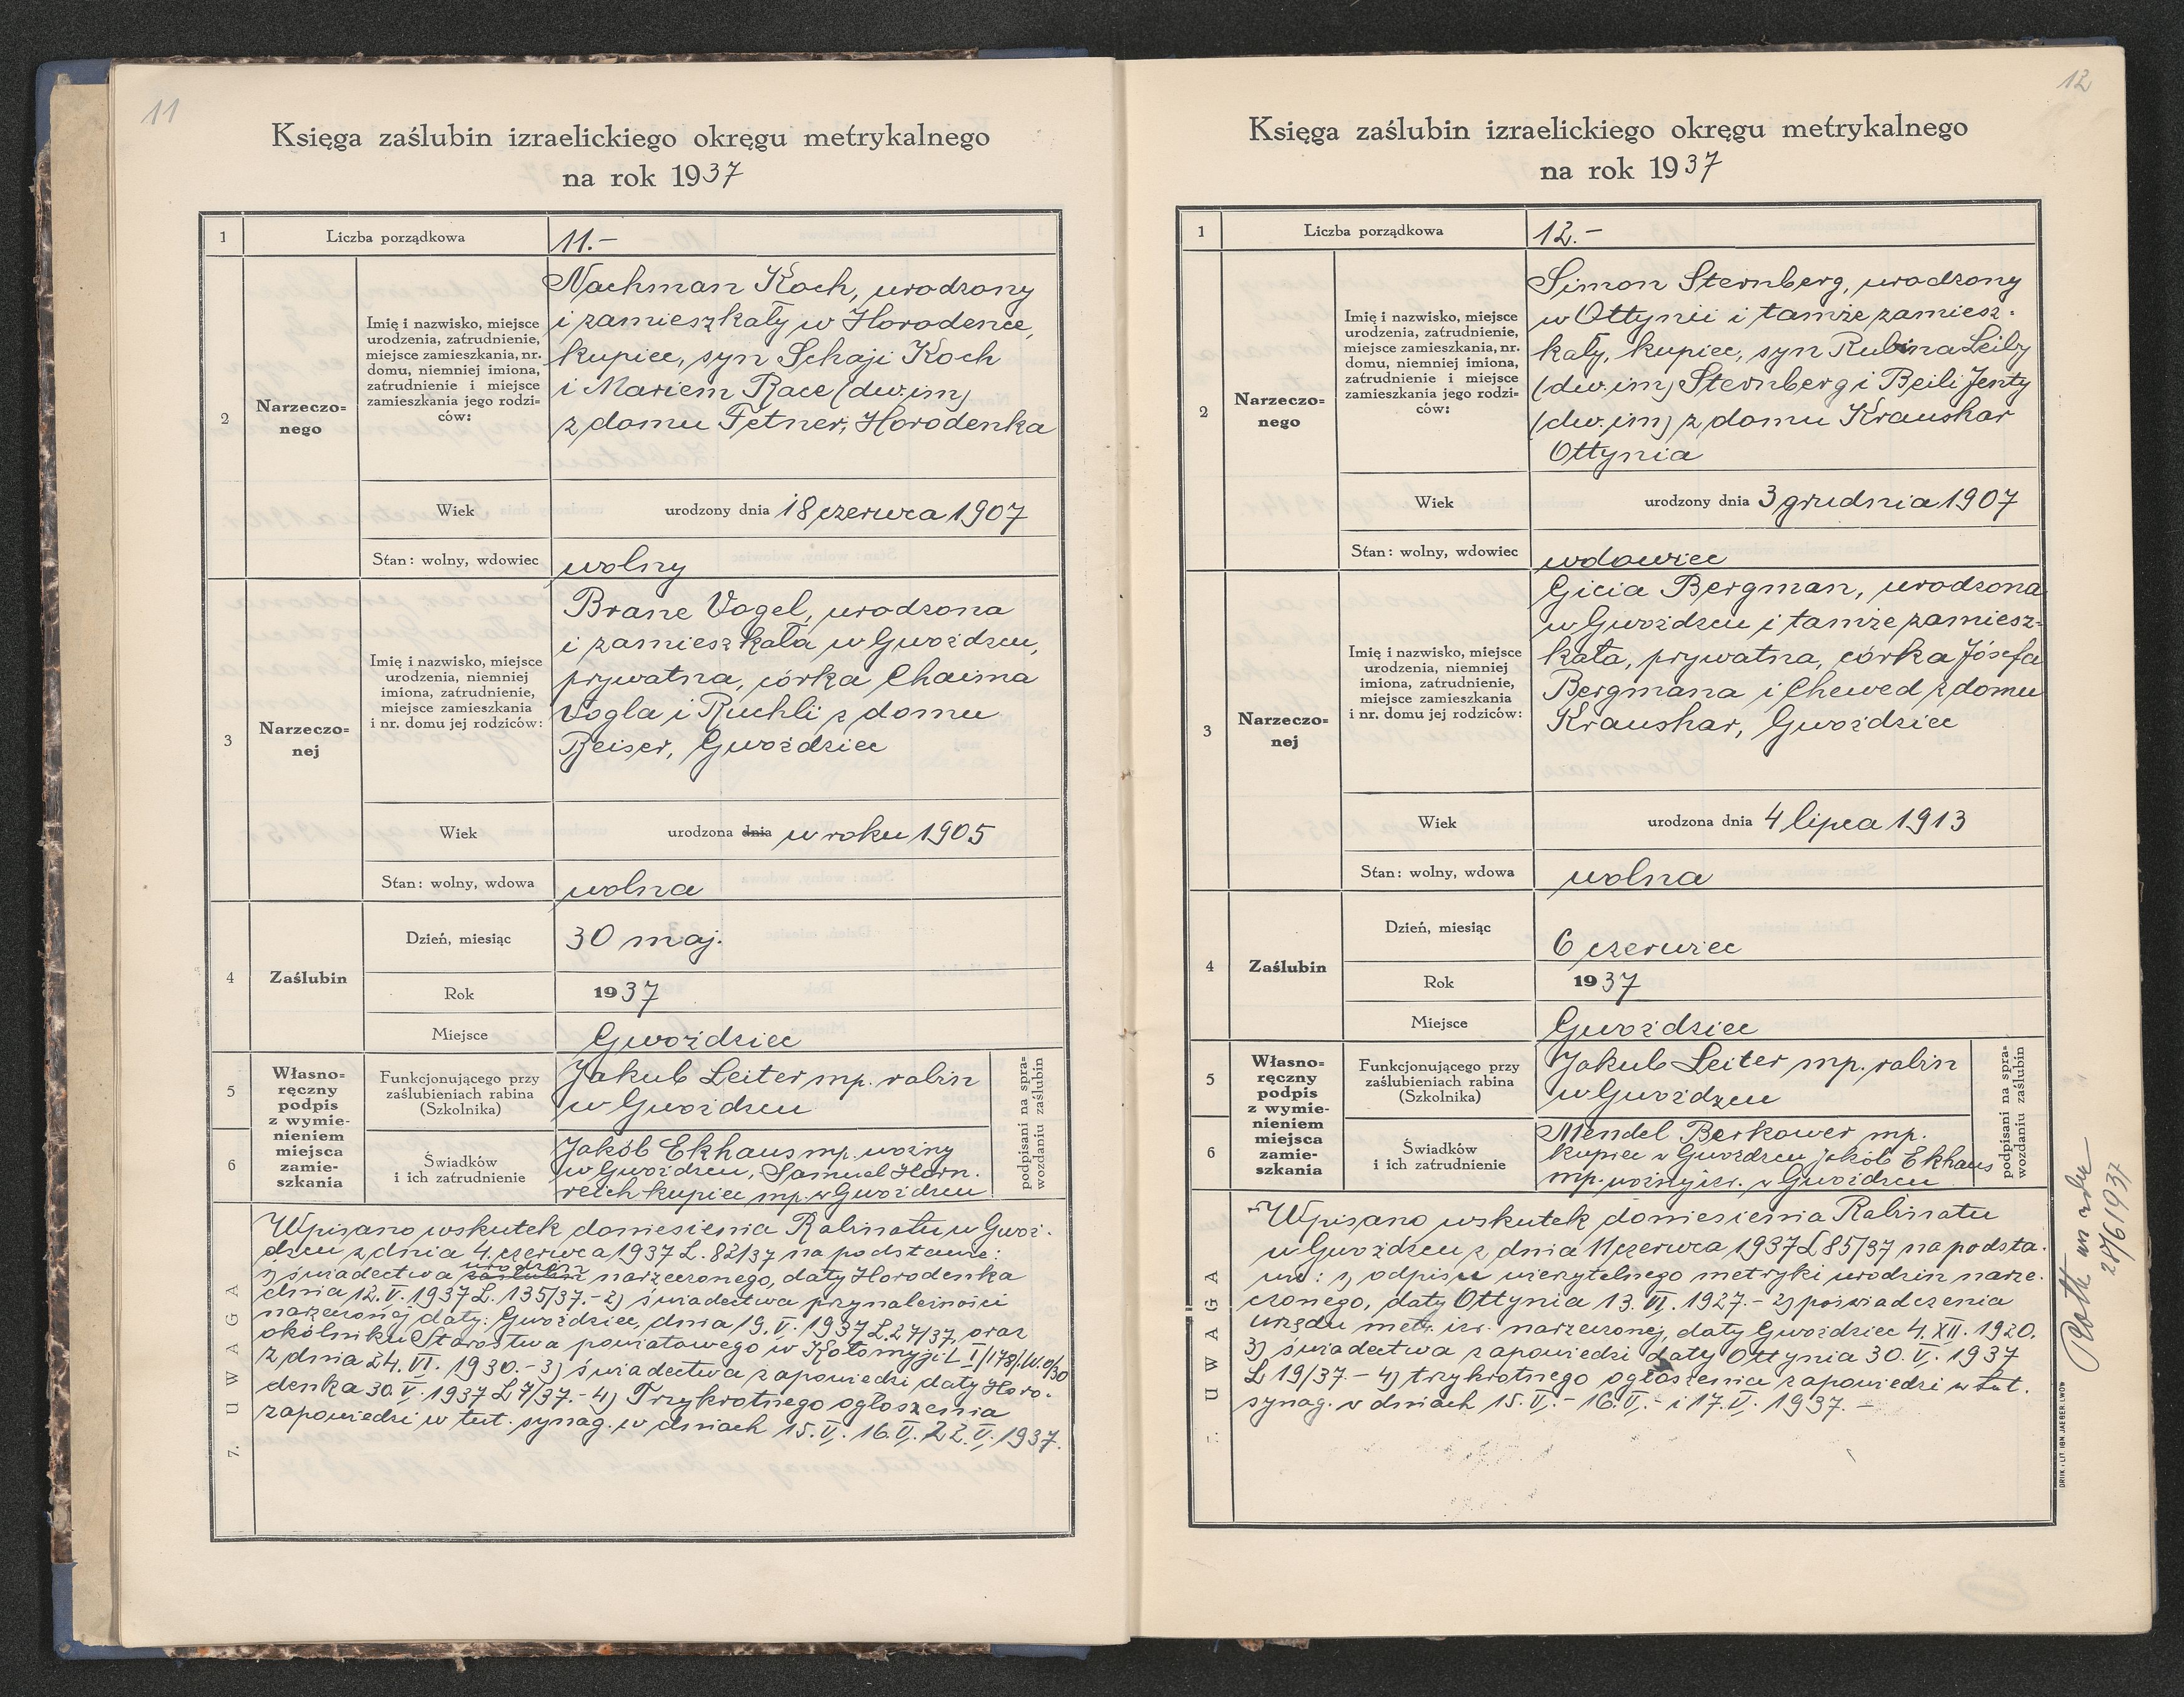 11
Księga zaślubin izraelickiego okręgu metrykalnego
na rok 1937
1
Liczba porządkowa
11.-
2
Narzeczo=
nego
Imię i nazwisko, miejsce
urodzenia, zatrudnienie,
miejsce zamieszkania, nr.
domu, niemniej imiona,
zatrudnienie i miejsce
zamieszkania jego rodzi=
ców:
Nachman Koch, urodzony
i zamieszkały w Horodence,
kupiec, syn Schaji Koch
i Mariem Race (dw.im)
z domu Fetner, Horodenka
Wiek
urodzony dnia 18 czerwca 1907
Stan: wolny, wdowiec
wolny
3
Narzeczo=
nej
Imię i nazwisko, miejsce
urodzenia, niemniej
imiona, zatrudnienie,
miejsce zamieszkania
i nr. domu jej rodziców:
Brane Vogel, urodzona
i zamieszkała w Gwoźdzcu,
prywatna, córka Chaima
Vogla i Ruchli z domu
Beiser, Gwoździec
Wiek
urodzona dnia w roku 1905
Stan: wolny, wdowa
wolna
4
Zaślubin
Dzień, miesiąc
30 maj.
Rok
1937
Miejsce
Gwoździec
5
6
Własno=
ręczny
podpis
z wymie=
nieniem
miejsca
zamie=
szkania
Funkcjonującego przy
zaślubieniach rabina
(Szkolnika)
Jakub Leiter mp. rabin
w Gwoźdzcu
Świadków
i ich zatrudnienie
Jakób Ekhaus mp. woźny
w Gwoźdzcu, Samuel Horn.
reich kupiec mp. w Gwoźdzcu
podpisani na spra=
wozdaniu zaślubin
7. UWAGA
Wpisano wskutek doniesienia Rabinatu w Gwoź.
dzcu z dnia 4 czerwca 1937 L. 82/37 na podstawie:
urodzin
1) świadectwa zaślubin narzeczonego, daty Horodenka
dnia 12.V.1937 L. 135/37.- 2) świadectwa przynależności
narzeczonej daty: Gwoździec, dnia 19.V.1937 L.27/37, oraz
okólniku Starostwa powiatowego w Kołomyji L I/178/1.W.0/30
z dnia 24.VI.1930.- 3) świadectwa zapowiedzi daty Horo.
denka 30.V.1937 L 7/37.- 4) Trzykrotnego ogłoszenia
zapowiedzi w tut. synag. w dniach 15.V. 16.V. 22.V.1937.
12
Księga zaślubin izraelickiego okręgu metrykalnego
na rok 1937
1
Liczba porządkowa
12.-
2
Narzeczo=
nego
Imię i nazwisko, miejsce
urodzenia, zatrudnienie,
miejsce zamieszkania, nr.
domu, niemniej imiona,
zatrudnienie i miejsce
zamieszkania jego rodzi=
ców:
Simon Sternberg, urodzony
w Ottynii i tamże zamiesz.
kały, kupiec, syn Rubina Leiby
(dw.im) Sternberg i Beili Jenty
(dw.im) z domu Kraushar
Ottynia
Wiek
urodzony dnia 3 grudnia 1907
Stan: wolny, wdowiec
wdowiec
3
Narzeczo=
nej
Imię i nazwisko, miejsce
urodzenia, niemniej
imiona, zatrudnienie,
miejsce zamieszkania
i nr. domu jej rodziców:
Gicia Bergman, urodzona
w Gwoźdzcu i tamże zamiesz=
kała, prywatna, córka Józefa
Bergmana i Chewed z domu
Kraushar, Gwoździec
Wiek
urodzona dnia 4 lipca 1913
Stan: wolny, wdowa
wolna
4
Zaślubin
Dzień, miesiąc
6 czerwiec
Rok
1937
Miejsce
Gwoździec
5
6
Własno=
ręczny
podpis
z wymie=
nieniem
miejsca
zamie=
szkania
Funkcjonującego przy
zaślubieniach rabina
(Szkolnika)
Jakub Leiter mp. rabin
w Gwoźdzcu
Świadków
i ich zatrudnienie
Mendel Berkower mp.
kupiec w Gwoźdzcu Jakób Ekhaus
mp. woźny izr. w Gwoźdzcu
podpisani na spra=
wozdaniu zaślubin
UWAGA
Wpisano wskutek doniesienia Rabinatu
w Gwoźdzcu z dnia 11 czerwca 1937 L 85/37 na podsta.
wie: 1) odpisu wierzytelnego metryki urodzin narze.
czonego, daty Ottynia 13.VI.1927.- 2) poświadczenia
urzędu metr. izr. narzeczonej, daty Gwoździec 4.XII.1920.
3) świadectwa zapowiedzi daty Ottynia 30.V.1937
L 19/37.- 4) trzykrotnego ogłoszenia zapowiedzi w tut.
synag. w dniach 15.V.- 16.V.- i 17.V. 1937.-
DRUK i LIT. IGN. JAEGER, LWÓW